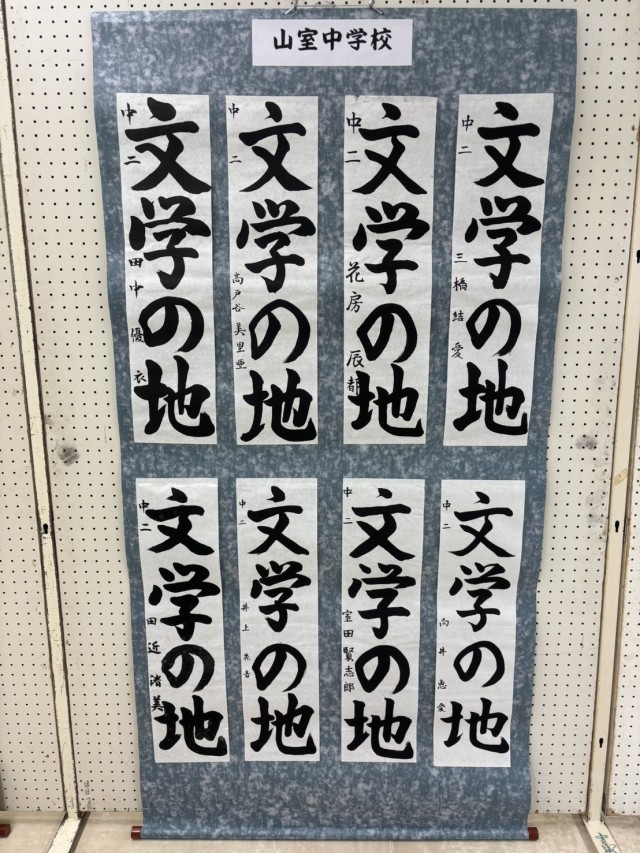 山室中学校
文学の地
中二 三橋結愛
文学の地
中二 花房辰都
文学の地
中二 高戸谷美里亜
文学の地
中二 田中優衣
文学の地
中二 向井恵愛
文学の地
中二 室田賢志郎
文学の地
中二 井上
文学の地
中二 田近渚美